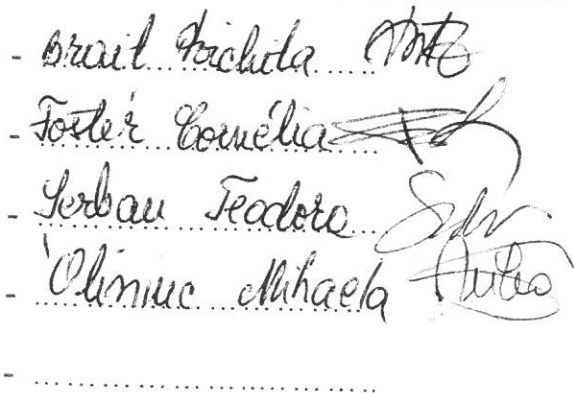 - Brait Nichita
- Foster Cornélia
- Serban Teodora
- Oliniuc Mihaela
-